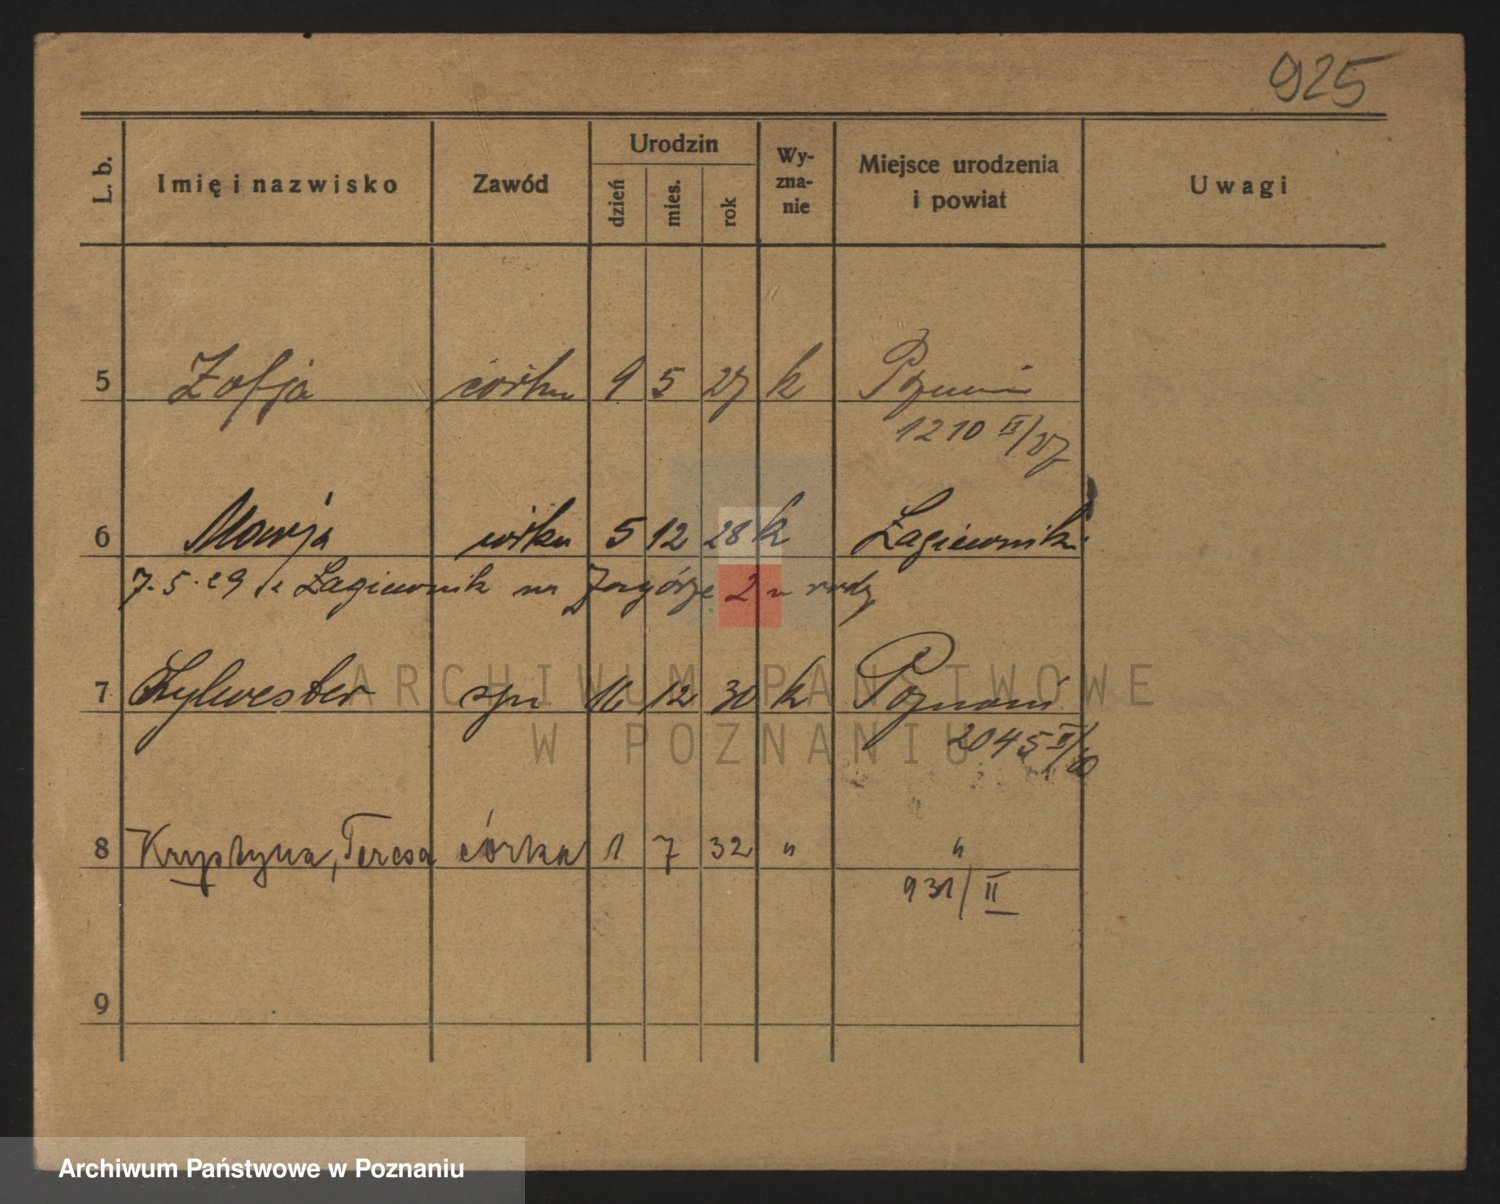 925
L. b. Imię i nazwisko Zawód Urodzin dzień mies. rok Wy-zna-nie Miejsce urodzenia i powiat Uwagi
5 Zofja córka 9 5 27 k Poznań
1210 II/27
6 Marja córka 5 12 28 k Łagiewniki
7.5.29 z Łagiewnik na Zagórze 2 rodz
7 Sylwester syn 12 30 k Poznań
2045 II/30
8 Krystyna, Teresa córka 1 7 32 " "
931/II
9
ARCHIWUM PAŃSTWOWE
W POZNANIU
Archiwum Państwowe w Poznaniu